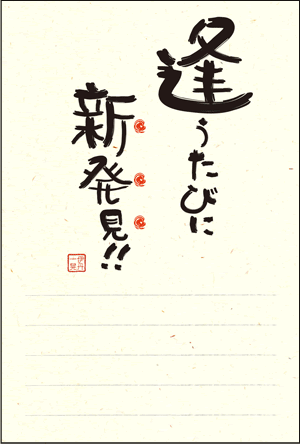 逢うたびに
新発見!!